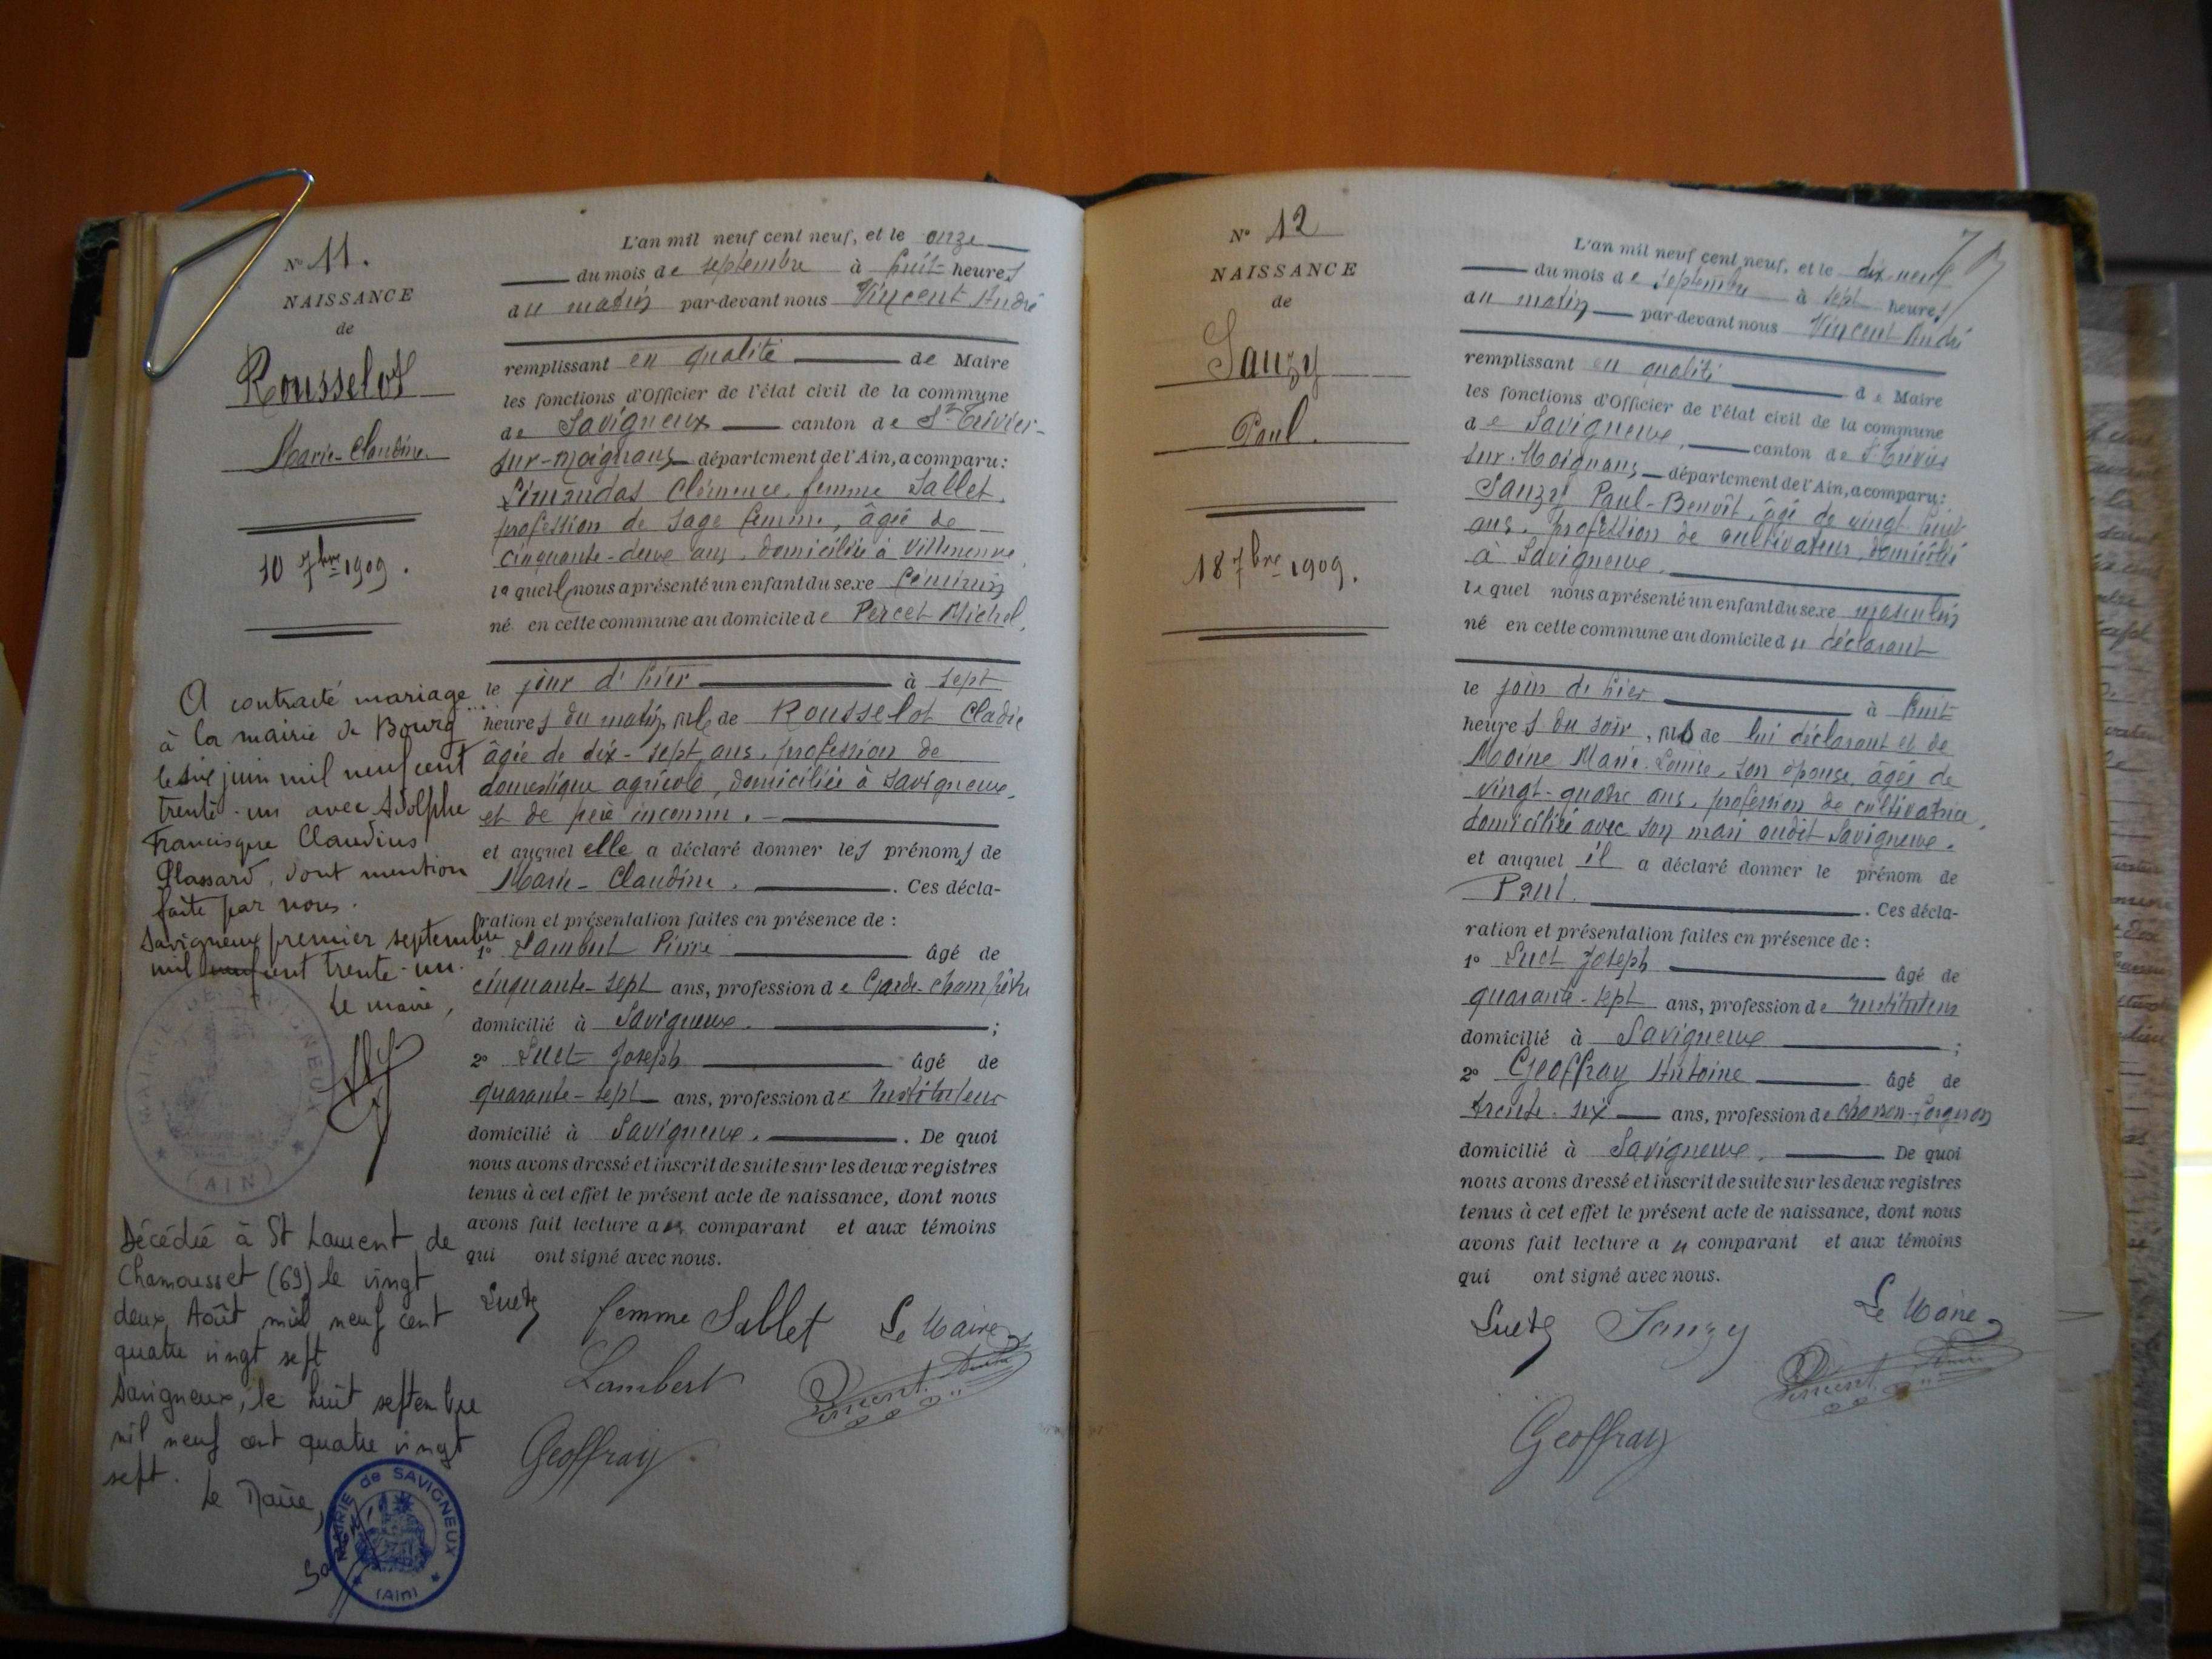 N° 11.
NAISSANCE
de
Rousselot
Marie-Claudine.
10 7bre 1909.
A contracté mariage
à la mairie de Bourg
le six juin mil neuf cent
trente-un avec Adolphe
Francisque Claudius
Plassard, dont mention
faite par nous.
Savigneux premier septembre
mil neuf cent trente-un.
Le maire,
MAIRIE DE SAVIGNEUX
(AIN)
Décédée à St Laurent de
Chamousset (69) le vingt
deux Août mil neuf cent
quatre vingt sept
Savigneux, le huit septembre
mil neuf cent quatre vingt
sept.
Le Maire,
MAIRIE de SAVIGNEUX
(Ain)
L'an mil neuf cent neuf, et le onze
du mois de septembre à huit heures
du matin par-devant nous Vincent André
remplissant en qualité de Maire
les fonctions d'Officier de l'état civil de la commune
de Savigneux canton de St Trivier-
sur-Moignans département de l'Ain, a comparu:
Clémence, femme Sallet,
profession de sage femme, âgée de
cinquante-deux ans, domiciliée à Villeneuve,
laquelle nous a présenté un enfant du sexe féminin
né en cette commune au domicile de Percet Michel,
le jour d'hier à sept
heures du matin, de Rousselot Cladie
âgée de dix-sept ans, profession de
domestique agricole, domiciliée à Savigneux,
et de père inconnu.
et auquel elle a déclaré donner les prénoms de
Marie-Claudine. Ces décla-
ration et présentation faites en présence de :
1° Lambert Pierre âgé de
cinquante-sept ans, profession de Garde-champêtre
domicilié à Savigneux. ;
2° Luet Joseph âgé de
quarante-sept ans, profession de Instituteur
domicilié à Savigneux. De quoi
nous avons dressé et inscrit de suite sur les deux registres
tenus à cet effet le présent acte de naissance, dont nous
avons fait lecture a la comparant et aux témoins
qui ont signé avec nous.
Luet femme Sallet Le Maire
Lambert Vincent André
Geoffray
N° 12
NAISSANCE
de
Sauzy
Paul.
18 7bre 1909.
L'an mil neuf cent neuf, et le dix-neuf
du mois de septembre à sept heures
du matin par-devant nous Vincent André
remplissant en qualité de Maire
les fonctions d'Officier de l'état civil de la commune
de Savigneux, canton de St Trivier
sur-Moignans département de l'Ain, a comparu:
Sauzy Paul-Benoît, âgé de vingt huit
ans, profession de cultivateur, domicilié
à Savigneux.
lequel nous a présenté un enfant du sexe masculin
né en cette commune au domicile du déclarant
le jour de hier à huit
heures du soir, de lui déclarant et de
Moine Marie-Louise, son épouse, âgée de
vingt-quatre ans, profession de cultivatrice,
domiciliée avec son mari audit Savigneux.
et auquel il a déclaré donner le prénom de
Paul. Ces décla-
ration et présentation faites en présence de :
1° Luet Joseph âgé de
quarante-sept ans, profession de Instituteur
domicilié à Savigneux ;
2° Geoffray Antoine âgé de
trente-six ans, profession de charron-forgeron
domicilié à Savigneux. De quoi
nous avons dressé et inscrit de suite sur les deux registres
tenus à cet effet le présent acte de naissance, dont nous
avons fait lecture a u comparant et aux témoins
qui ont signé avec nous.
Luet Sauzy Le Maire
Vincent André
Geoffray